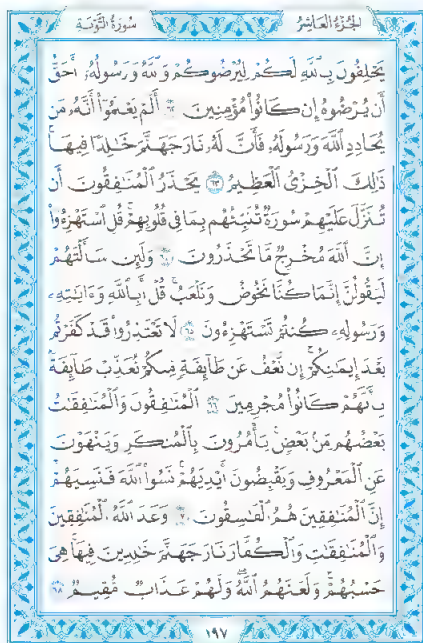 الجُزْءُ العَاشِرُ سُورَةُ التَّوْبَةِ
يَحْلِفُونَ بِٱللَّهِ لَكُمْ لِيُرْضُوكُمْ وَٱللَّهُ وَرَسُولُهُۥٓ أَحَقُّ
أَن يُرْضُوهُ إِن كَانُوا۟ مُؤْمِنِينَ ٦٢ أَلَمْ يَعْلَمُوٓا۟ أَنَّهُۥ مَن
يُحَادِدِ ٱللَّهَ وَرَسُولَهُۥ فَأَنَّ لَهُۥ نَارَ جَهَنَّمَ خَٰلِدًا فِيهَا
ذَٰلِكَ ٱلْخِزْىُ ٱلْعَظِيمُ ٦٣ يَحْذَرُ ٱلْمُنَٰفِقُونَ أَن
تُنَزَّلَ عَلَيْهِمْ سُورَةٌ تُنَبِّئُهُم بِمَا فِى قُلُوبِهِمْ قُلِ ٱسْتَهْزِءُوٓا۟
إِنَّ ٱللَّهَ مُخْرِجٌ مَّا تَحْذَرُونَ ٦٤ وَلَئِن سَأَلْتَهُمْ
لَيَقُولُنَّ إِنَّمَا كُنَّا نَخُوضُ وَنَلْعَبُ قُلْ أَبِٱللَّهِ وَءَايَٰتِهِۦ
وَرَسُولِهِۦ كُنتُمْ تَسْتَهْزِءُونَ ٦٥ لَا تَعْتَذِرُوا۟ قَدْ كَفَرْتُم
بَعْدَ إِيمَٰنِكُمْ إِن نَّعْفُ عَن طَآئِفَةٍ مِّنكُمْ نُعَذِّبْ طَآئِفَةًۢ
بِأَنَّهُمْ كَانُوا۟ مُجْرِمِينَ ٦٦ ٱلْمُنَٰفِقُونَ وَٱلْمُنَٰفِقَٰتُ
بَعْضُهُم مِّنۢ بَعْضٍ يَأْمُرُونَ بِٱلْمُنكَرِ وَيَنْهَوْنَ
عَنِ ٱلْمَعْرُوفِ وَيَقْبِضُونَ أَيْدِيَهُمْ نَسُوا۟ ٱللَّهَ فَنَسِيَهُمْ
إِنَّ ٱلْمُنَٰفِقِينَ هُمُ ٱلْفَٰسِقُونَ ٦٧ وَعَدَ ٱللَّهُ ٱلْمُنَٰفِقِينَ
وَٱلْمُنَٰفِقَٰتِ وَٱلْكُفَّارَ نَارَ جَهَنَّمَ خَٰلِدِينَ فِيهَا هِىَ
حَسْبُهُمْ وَلَعَنَهُمُ ٱللَّهُ وَلَهُمْ عَذَابٌ مُّقِيمٌ ٦٨
١٩٧